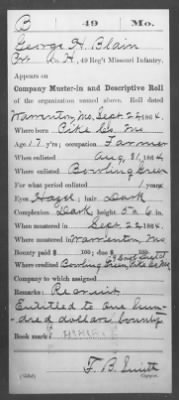 B 49 Mo.
George H. Blain
Co. H, 49 Reg't Missouri Infantry.
Appears on
Company Muster-in and Descriptive Roll
of the organization named above. Roll dated
Warrenton, Mo. Sept. 22, 1864.
Where born Pike Co. Mo
Age 17 y'rs; occupation Farmer
When enlisted Aug. 31, 1864
Where enlisted Bowling Green
For what period enlisted 1 years.
Eyes Hazel; hair Dark
Complexion Dark; height 5 ft. 6 in.
When mustered in Sept. 22, 1864.
Where mustered in Warrenton, Mo
Bounty paid $ 100; due $ 100
Where credited Bowling Green, Pike Co. Mo
Company to which assigned
Remarks: Recruit
Entitled to one hun-
dred dollars bounty
Book mark:
F. B. Smith
Copyist.